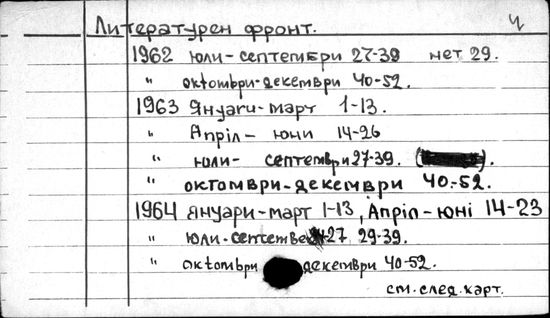 Литературен фронт. 4
1962 юли-септември 27-39 нет 29.
" октомври-декември 40-52.
1963 Януари-март 1-13.
" Апріл- юни 14-26
" юли- септември 27-39. ( ).
" октомври-декември 40-52.
1964 януари-март 1-13, Апріл-юні 14-23
" юли-септемве 27 29-39.
" октомври декември 40-52.
см.след.карт.